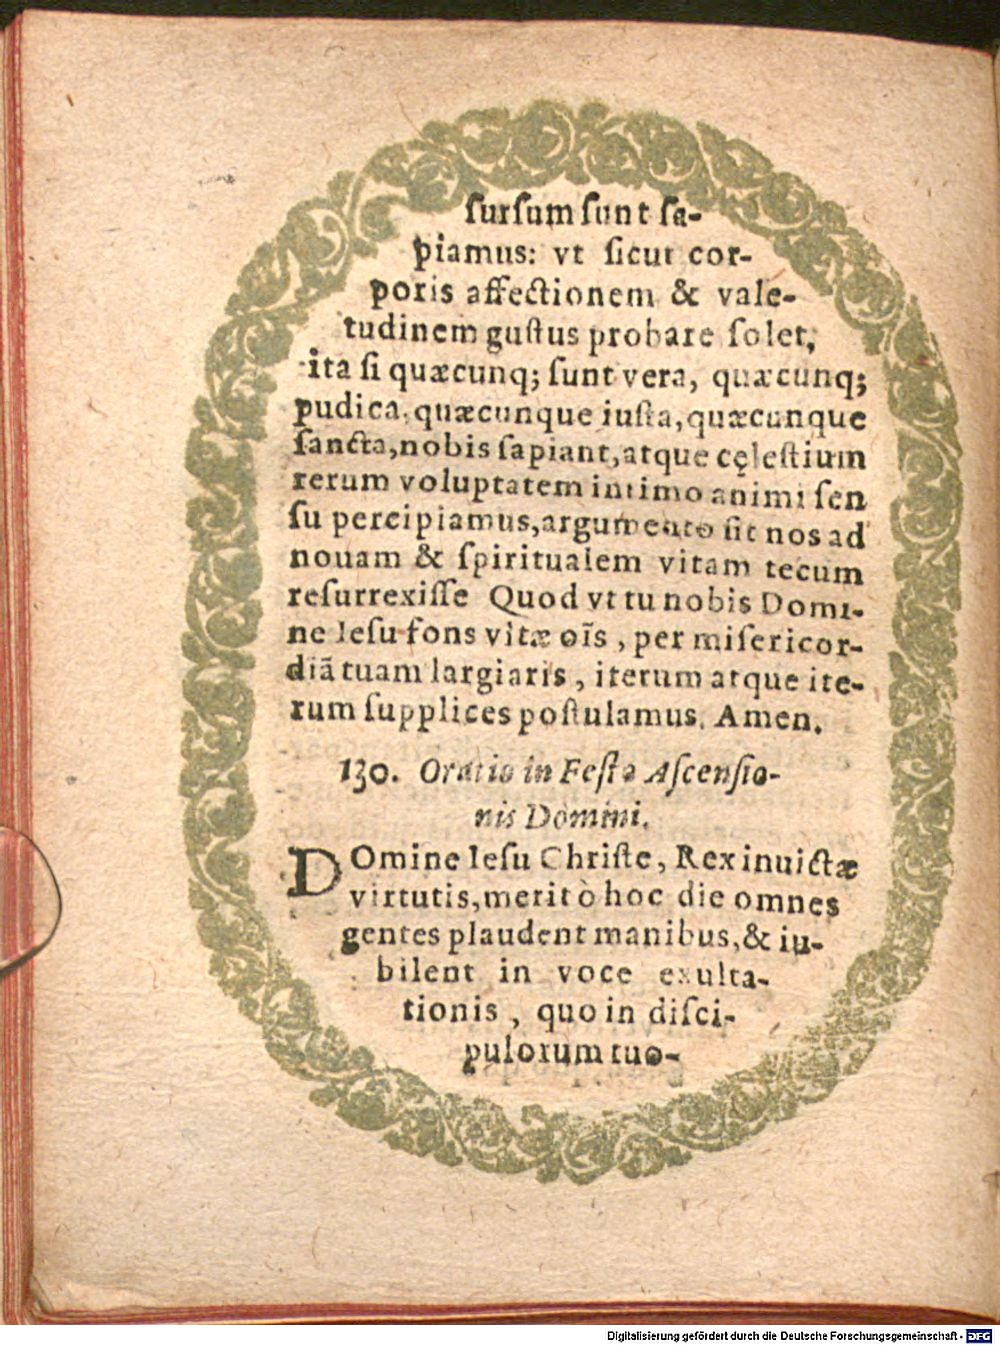 surſum ſunt ſa-
piamus: vt ſicut cor-
poris affectionem & vale-
tudinem guſtus probare ſolet,
ita ſi quæcunq; ſunt vera, quæcunq;
pudica, quæcunque iuſta, quæcunque
ſancta, nobis ſapiant, atque cęleſtium
rerum voluptatem intimo animi ſen
ſu percipiamus, argumento ſit nos ad
nouam & ſpiritualem vitam tecum
reſurrexiſſe Quod vt tu nobis Domi-
ne Ieſu fons vitæ oĩs, per miſericor-
diã tuam largiaris, iterum atque ite-
rum ſupplices poſtulamus. Amen.
130. Oratio in Feſto Aſcenſio-
nis Domini.
DOmine Ieſu Chriſte, Rex inuictæ
virtutis, meritò hoc die omnes
gentes plaudent manibus, & iu-
bilent in voce exulta-
tionis, quo in diſci-
pulorum tuo-
Digitalisierung gefördert durch die Deutsche Forschungsgemeinschaft - DFG